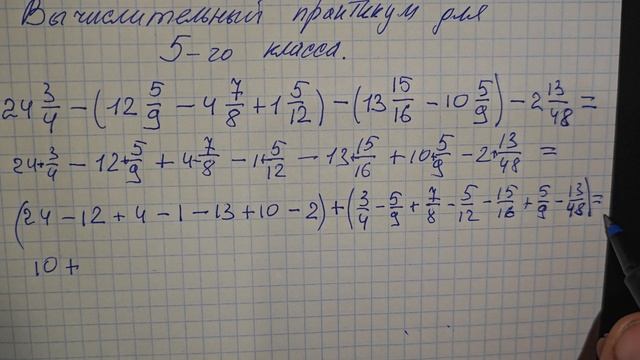 Вычислительный практикум для
5-го класса.
24 3/4 − (12 5/9 − 4 7/8 + 1 5/12) − (13 15/16 − 10 5/9) − 2 13/48 =
24+3/4 − 12+5/9 + 4+7/8 − 1+5/12 − 13+15/16 + 10+5/9 − 2+13/48 =
(24 − 12 + 4 − 1 − 13 + 10 − 2) + (3/4 − 5/9 + 7/8 − 5/12 − 15/16 + 5/9 − 13/48) =
10 +